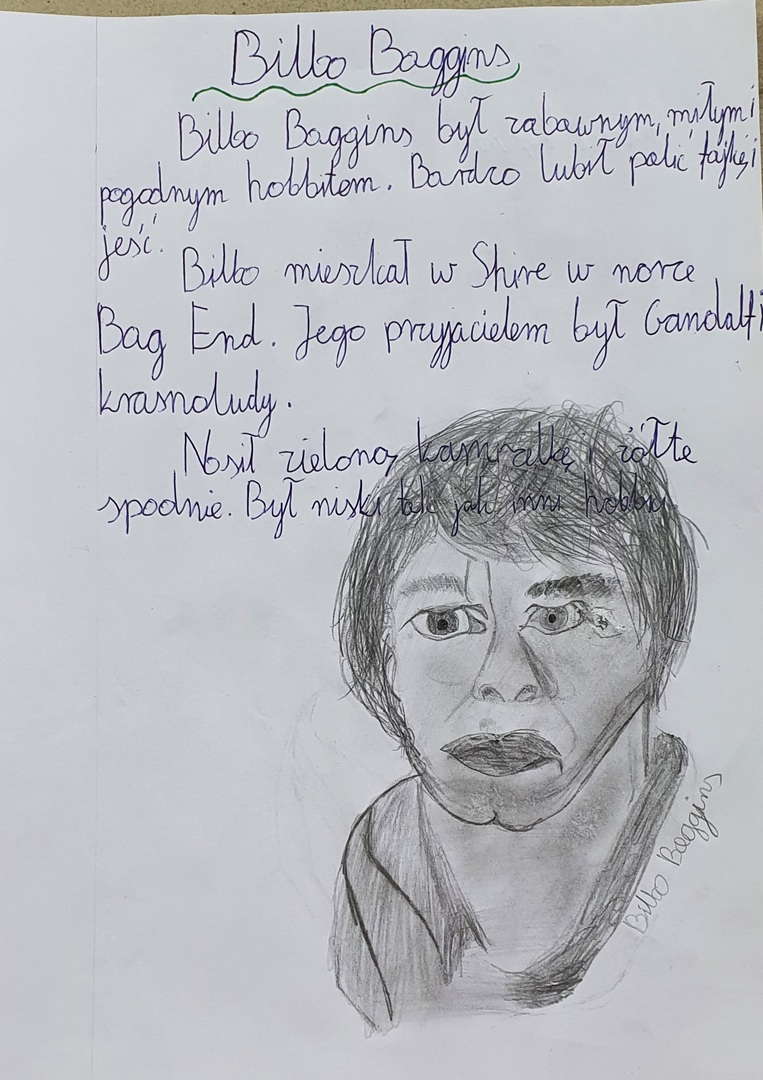 Bilbo Baggins
Bilbo Baggins był zabawnym, miłym i
pogodnym hobbitem. Bardzo lubił palić fajkę i
jeść.
Bilbo mieszkał w Shire w norce
Bag End. Jego przyjacielem był Gandalf i
krasnoludy.
Nosił zieloną kamizelkę i żółte
spodnie. Był niski tak jak inni hobbici
Bilbo Baggins